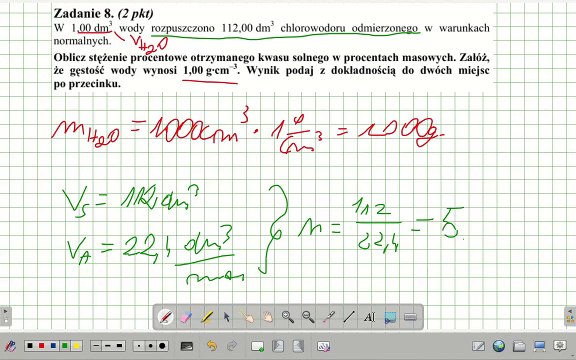 Zadanie 8. (2 pkt)
W 1,00 dm³ wody rozpuszczono 112,00 dm³ chlorowodoru odmierzonego w warunkach
normalnych. V H2O
Oblicz stężenie procentowe otrzymanego kwasu solnego w procentach masowych. Załóż,
że gęstość wody wynosi 1,00 g·cm⁻³. Wynik podaj z dokładnością do dwóch miejsc
po przecinku.
m H2O = 1000cm³ · 1 g/cm³ = 1000g
Vs = 112 dm³
VA = 22,4 dm³/mol
n = 112/22,4 = 5